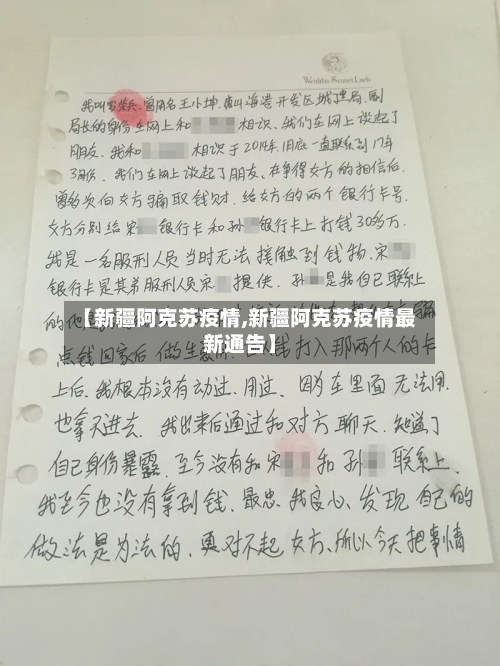 Wealthy Smart Lady
我叫宋兵、曾用名王小坤、唐山海港开发区城建局、副
局长的身份在网上和 相识、我们在网上谈起了
朋友、我和 相识于2014年、10底一直联系到17年
3月份、我们在网上谈起了朋友、在争得女方的相信后
曾多次向女方骗取钱财、给女方的两个银行卡号、
女方分别给宋 银行卡和孙 银行卡上打钱30多万、
我是一名服刑人员当时无法接触到钱物、宋
银行卡是其弟服刑人员宋 提供、孙 是我自己联系上
的他
【新疆阿克苏疫情,新疆阿克苏疫情最
新通告】
点钱回家后做生 钱打入那两个人的卡
上后、我根本没有动过、用过、因为在里面无法用、
也拿不进去、我出来后通过和对方聊天、知道了
自己身份暴露、至今没有和宋 和孙 联系上、
我至今也没有拿到钱、最忠、我良心、发现自己的
做法是为法的、更对不起女方、所以今天把事情